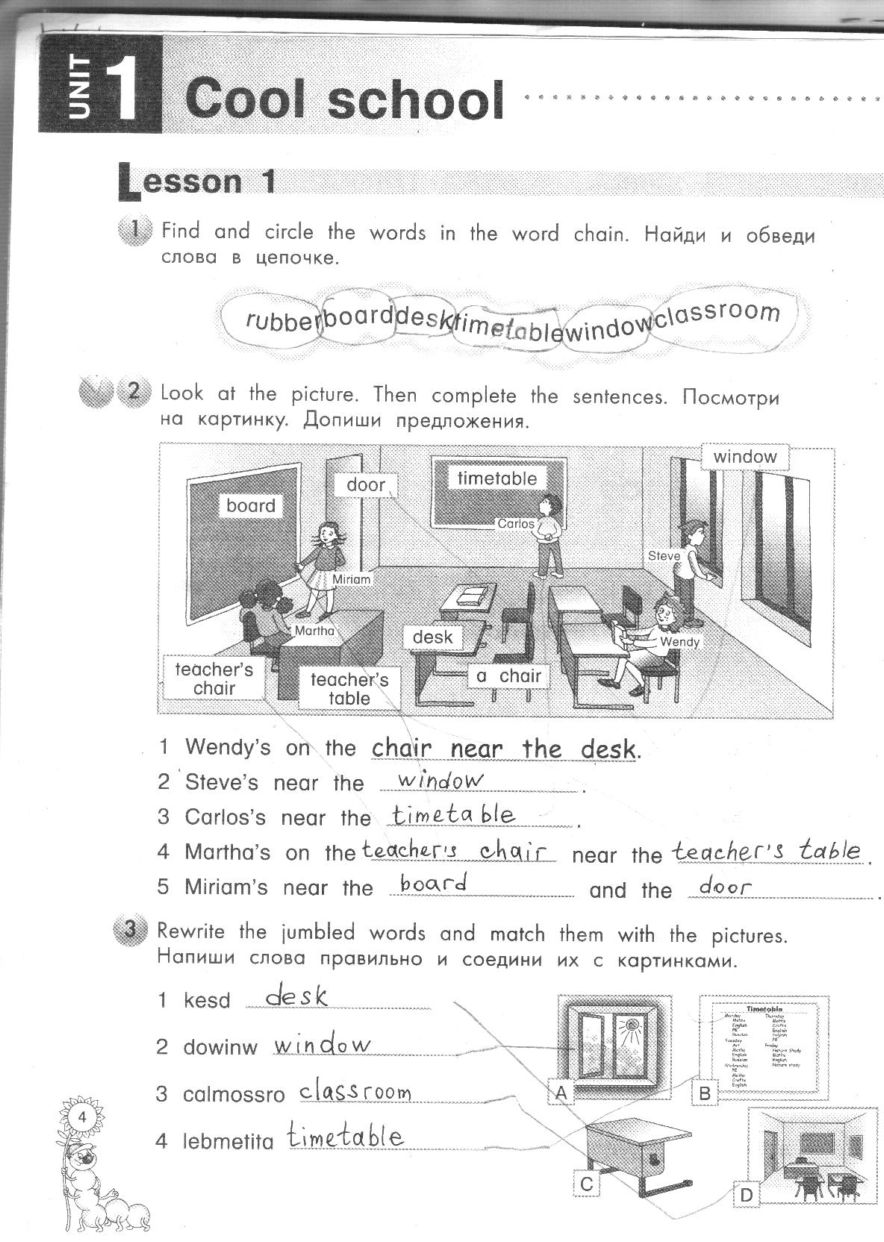 UNIT 1 Cool school
Lesson 1
1 Find and circle the words in the word chain. Найди и обведи
слова в цепочке.
rubberboarddesktimetablewindowclassroom
2 Look at the picture. Then complete the sentences. Посмотри
на картинку. Допиши предложения.
window
door
timetable
board
Carlos
Steve
Miriam
Martha
desk
Wendy
teacher's
chair
teacher's
table
a chair
1 Wendy's on the chair near the desk.
2 Steve's near the window.
3 Carlos's near the timetable.
4 Martha's on the teacher's chair near the teacher's table.
5 Miriam's near the board and the door.
3 Rewrite the jumbled words and match them with the pictures.
Напиши слова правильно и соедини их с картинками.
1 kesd desk
2 dowinw window
3 calmossro classroom
4 lebmetita timetable
A
B
Timetable
Monday
Maths
English
PE
Russian
Tuesday
Art
Maths
English
Russian
Wednesday
PE
Maths
Crafts
English
Thursday
Maths
Crafts
English
PE
Friday
Nature Study
Maths
English
Nature study
C
D
4